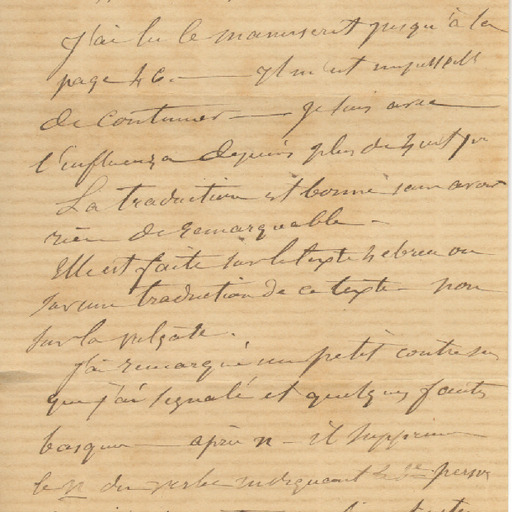 J'ai lu le manuscrit jusqu'à la
page 46. — Il m'est impossible
de continuer — je suis avec
l'influenza depuis plus de huit jrs
La traduction est bonne sans avoir
rien de remarquable —
Elle est faite sur le texte hebreu ou
sur une traduction de ce texte — non
sur la vulgate.
J'ai remarqué un petit contre sens
que j'ai signalé et quelques fautes
basques — après n — il supprime
le n du verbe indiquant 2de pers